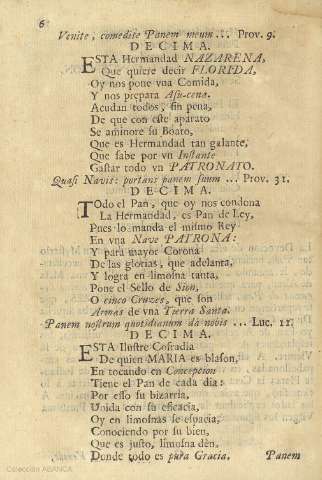 6
Venite, comedite Panem meum ... Prov. 9.
DECIMA.
ESTA Hermandad NAZARENA,
Que quiere decir FLORIDA,
Oy nos pone vna Comida,
Y nos prepara Asu-cena.
Acudan todos, sin pena,
De que con este aparato
Se aminore su Boato,
Que es Hermandad tan galante,
Que sabe por vn Instante
Gastar todo vn PATRONATO.
Quasi Navis: portans panem suum ... Prov. 31.
DECIMA.
Todo el Pan, que oy nos condona
La Hermandad, es Pan de Ley,
Pues lo manda el mismo Rey
En vna Nave PATRONA:
Y para mayor Corona
De las glorias, que adelanta,
Y logra en limosna tanta,
Pone el Sello de Sion,
O cinco Cruzes, que son
Armas de vna Tierra Santa.
Panem nostrum quotidianum da nobis ... Luc. 11.
DECIMA.
ESTA Ilustre Cofradia
De quien MARIA es blason,
En tocando en Concepcion
Tiene el Pan de cada dia:
Por esso su bizarria,
Unida con su eficacia,
Oy en limosnas se espacia,
Conociendo por su bien,
Que es justo, limosna dèn,
Donde todo es pura Gracia.
Panem
Colección ABANCA